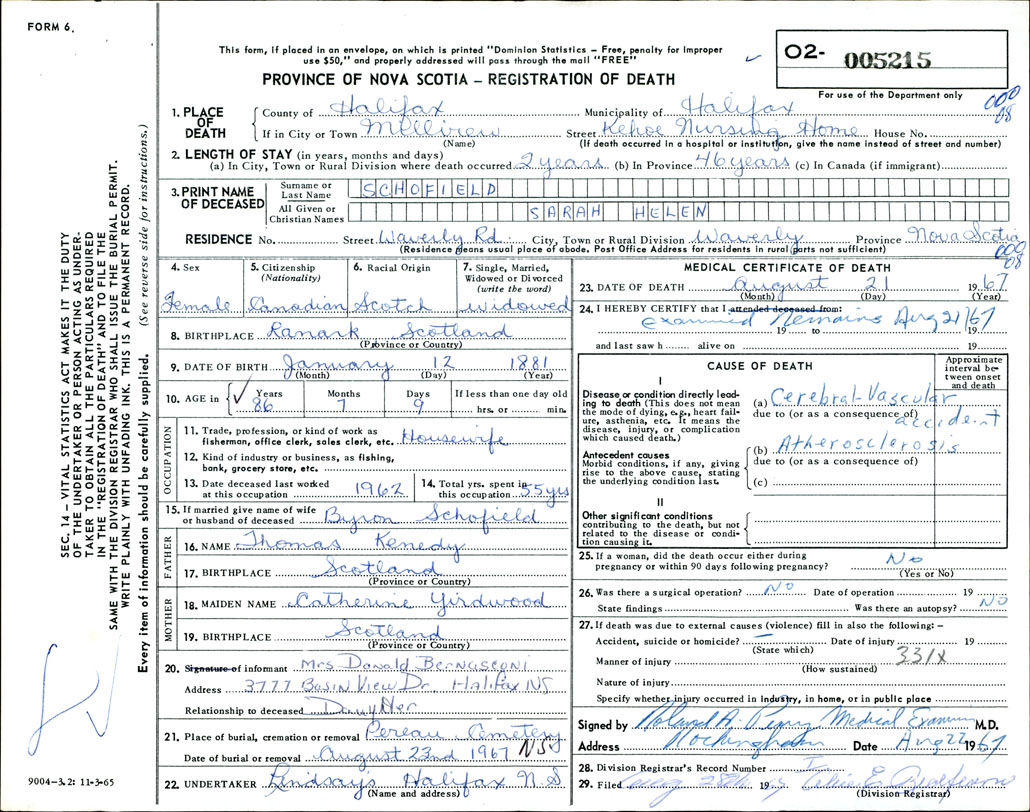 FORM 6.
This form, if placed in an envelope, on which is printed "Dominion Statistics – Free, penalty for improper
use $50," and properly addressed will pass through the mail "FREE"
PROVINCE OF NOVA SCOTIA – REGISTRATION OF DEATH
O2- 005215
For use of the Department only
000
08
SEC. 14 – VITAL STATISTICS ACT MAKES IT THE DUTY
OF THE UNDERTAKER OR PERSON ACTING AS UNDER-
TAKER TO OBTAIN ALL THE PARTICULARS REQUIRED
IN THE "REGISTRATION OF DEATH" AND TO FILE THE
SAME WITH THE DIVISION REGISTRAR WHO SHALL ISSUE THE BURIAL PERMIT.
WRITE PLAINLY WITH UNFADING INK. THIS IS A PERMANENT RECORD.
Every item of information should be carefully supplied. (See reverse side for instructions.)
1. PLACE OF DEATH County of Halifax Municipality of Halifax
If in City or Town Millview Street Kehoe Nursing Home House No.
(Name) (If death occurred in a hospital or institution, give the name instead of street and number)
2. LENGTH OF STAY (in years, months and days)
(a) In City, Town or Rural Division where death occurred 2 years (b) In Province 46 years (c) In Canada (if immigrant)
3. PRINT NAME OF DECEASED
Surname or Last Name SCHOFIELD
All Given or Christian Names SARAH HELEN
RESIDENCE No. Street Waverly Rd. City, Town or Rural Division Waverly Province Nova Scotia
(Residence means usual place of abode. Post Office Address for residents in rural parts not sufficient)
000
08
4. Sex Female
5. Citizenship (Nationality) Canadian
6. Racial Origin Scotch
7. Single, Married, Widowed or Divorced (write the word) widowed
8. BIRTHPLACE Lanark Scotland
(Province or Country)
9. DATE OF BIRTH January 12 1881
(Month) (Day) (Year)
10. AGE in Years 86 Months 7 Days 9 If less than one day old hrs. or min.
OCCUPATION
11. Trade, profession, or kind of work as fisherman, office clerk, sales clerk, etc. Housewife
12. Kind of industry or business, as fishing, bank, grocery store, etc.
13. Date deceased last worked at this occupation 1962
14. Total yrs. spent in this occupation 55 yrs
15. If married give name of wife or husband of deceased Byron Schofield
FATHER
16. NAME Thomas Kenedy
17. BIRTHPLACE Scotland
(Province or Country)
MOTHER
18. MAIDEN NAME Catherine Girdwood
19. BIRTHPLACE Scotland
(Province or Country)
20. Signature of informant Mrs Donald Bernasconi
Address 3777 Basin View Dr Halifax NS
Relationship to deceased Daughter
21. Place of burial, cremation or removal Pereau Cemetery
Date of burial or removal August 23rd 1967 NS
22. UNDERTAKER Lindsays Halifax N.S
(Name and address)
MEDICAL CERTIFICATE OF DEATH
23. DATE OF DEATH August 21 1967
(Month) (Day) (Year)
24. I HEREBY CERTIFY that I attended deceased from:
examined Remains Aug 21/67
19 to 19
and last saw h alive on 19
CAUSE OF DEATH
Approximate interval between onset and death
I
Disease or condition directly leading to death (This does not mean the mode of dying, e.g., heart failure, asthenia, etc. It means the disease, injury, or complication which caused death.)
(a) Cerebral-Vascular
due to (or as a consequence of) accident
Antecedent causes
Morbid conditions, if any, giving rise to the above cause, stating the underlying condition last.
(b) Atherosclerosis
due to (or as a consequence of)
(c)
II
Other significant conditions contributing to the death, but not related to the disease or condition causing it.
25. If a woman, did the death occur either during pregnancy or within 90 days following pregnancy? No
(Yes or No)
26. Was there a surgical operation? No Date of operation 19
State findings Was there an autopsy? No
27. If death was due to external causes (violence) fill in also the following: –
Accident, suicide or homicide? – Date of injury 19
(State which)
331X
Manner of injury
(How sustained)
Nature of injury
Specify whether injury occurred in industry, in home, or in public place
Signed by Roland A. Perry Medical Examiner M.D.
Address Rockingham Date Aug 22 1967
28. Division Registrar's Record Number
29. Filed Aug 28th 1967
(Division Registrar)
9004-3.2: 11-3-65